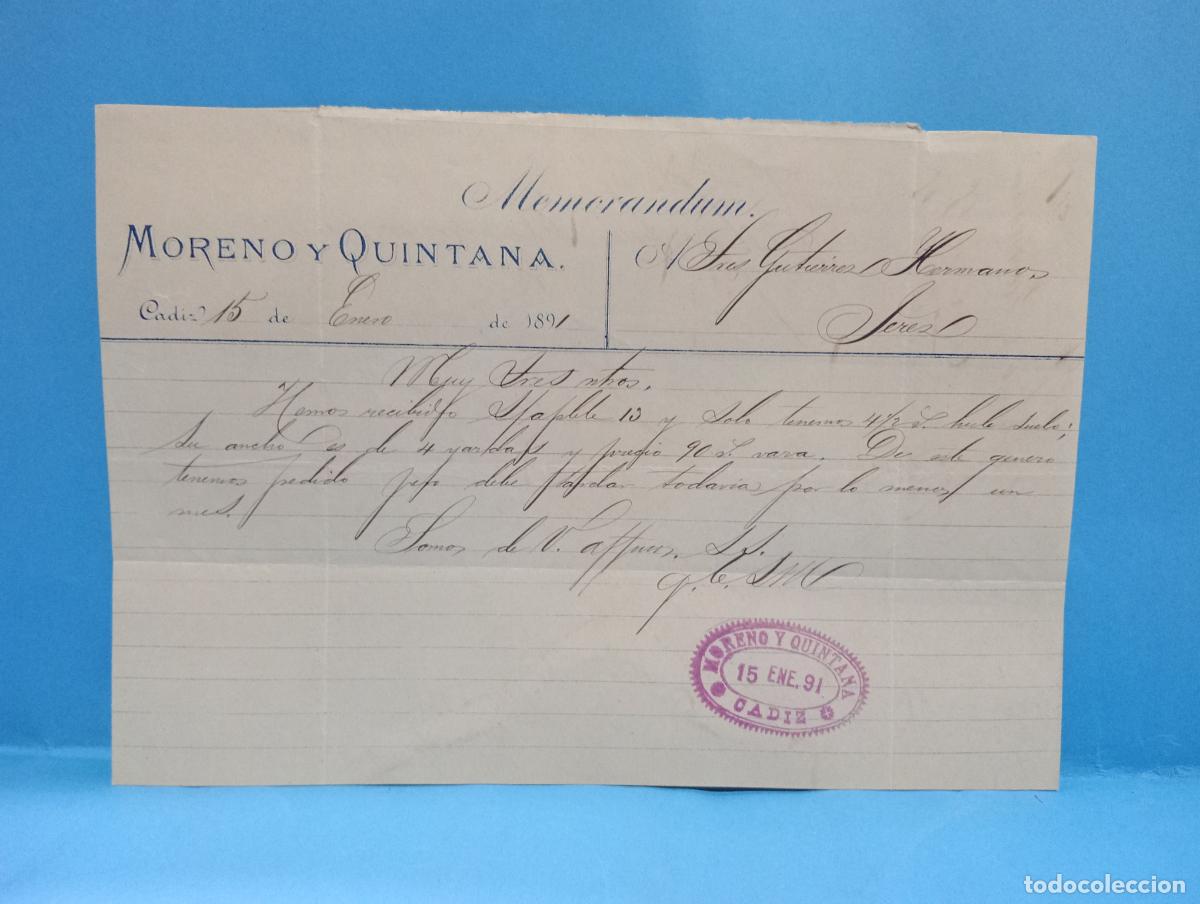 Memorandum.
MORENO Y QUINTANA.
A Sres Gutierres Hermanos
Cadiz 15 de Enero de 1891
Jeres
Muy Sres ntros.
Hemos recibido S/ aple 13 y solo tenemos 4 1/2 hule suelo;
su ancho es de 4 yardas y precio 90 vara. De este genero
tenemos pedido pero debe tardar todavia por lo menos un
mes.
Somos de V. affmos. S.S.
q. b. S M
MORENO Y QUINTANA
15 ENE. 91
CADIZ
todocoleccion